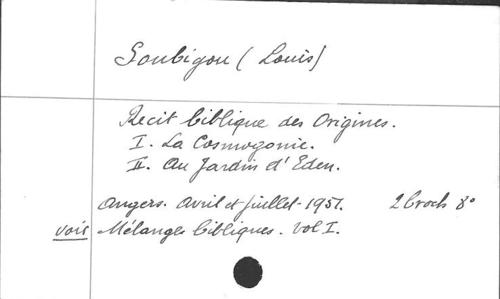 Soubigou (Louis)
Récit biblique des Origines.
I. La Cosmogonie.
II. Au Jardin d'Eden.
Angers. Avril et Juillet-1951. 2 broch 8°
voir Mélanges bibliques. Vol I.